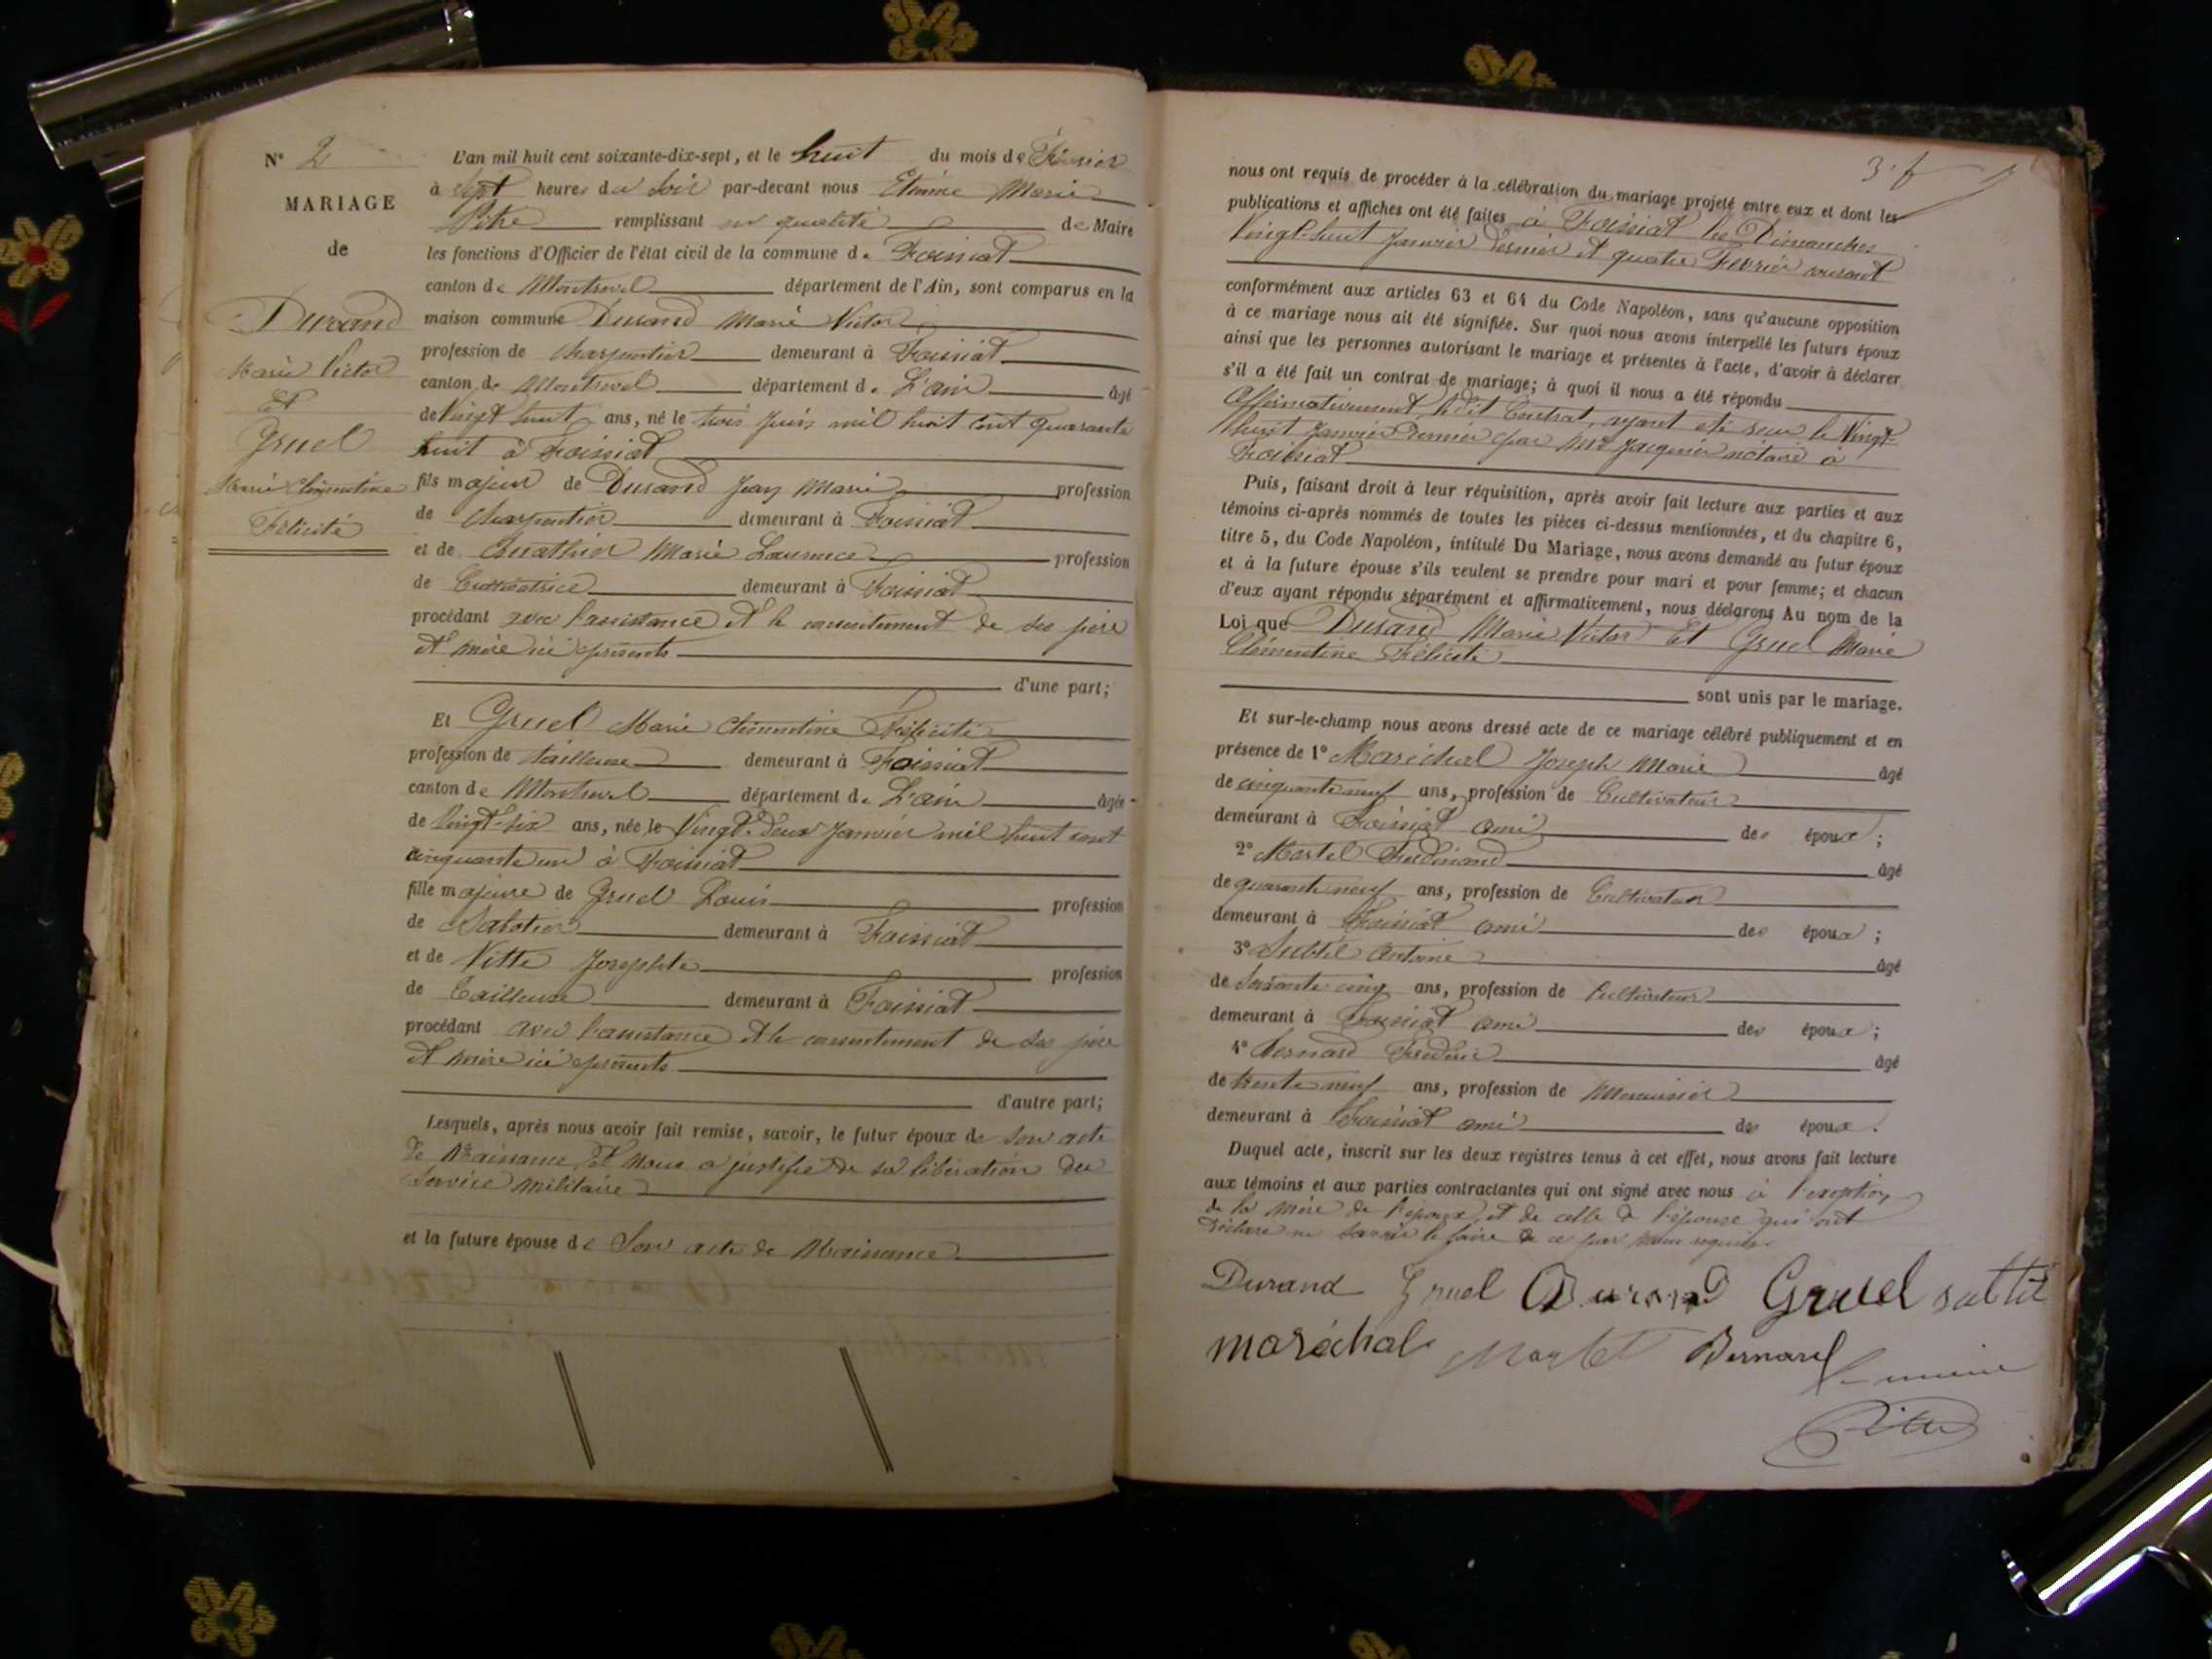 N° 2
MARIAGE
de
Durand
Marie Victor
Et
Gruel
Marie Clémentine
Félicité
L'an mil huit cent soixante-dix-sept, et le huit du mois de Février
à Sept heures du Soir par-devant nous Etienne Marie
Pitre remplissant en qualité de Maire
les fonctions d'Officier de l'état civil de la commune de Foissiat
canton de Montrevel département de l'Ain, sont comparus en la
maison commune Durand Marie Victor
profession de Charpentier demeurant à Foissiat
canton de Montrevel département de L'ain âgé
de Vingt huit ans, né le trois Juin mil huit cent quarante
huit à Foissiat
fils majeur de Durand Jean Marie profession
de Charpentier demeurant à Foissiat
et de Marie Laurence profession
de Cultivatrice demeurant à Foissiat
procédant avec l'assistance et le consentement de ses père
et mère ici présents
d'une part;
Et Gruel Marie Clémentine Félicité
profession de tailleuse demeurant à Foissiat
canton de Montrevel département de L'ain âgée
de Vingt-six ans, née le Vingt-deux Janvier mil huit cent
cinquante un à Foissiat
fille majeure de Gruel Louis profession
de Sabotier demeurant à Foissiat
et de Vitte Josephte profession
de Tailleuse demeurant à Foissiat
procédant avec l'assistance et le consentement de ses père
et mère ici présents
d'autre part;
Lesquels, après nous avoir fait remise, savoir, le futur époux de son acte
de Naissance, et nous a justifié de sa libération du
Service militaire
et la future épouse de Son acte de Naissance
3. f
nous ont requis de procéder à la célébration du mariage projeté entre eux et dont les
publications et affiches ont été faites à Foissiat les Dimanches
Vingt-huit Janvier dernier et quatre Février courant
conformément aux articles 63 et 64 du Code Napoléon, sans qu'aucune opposition
à ce mariage nous ait été signifiée. Sur quoi nous avons interpellé les futurs époux
ainsi que les personnes autorisant le mariage et présentes à l'acte, d'avoir à déclarer
s'il a été fait un contrat de mariage; à quoi il nous a été répondu
Affirmativement, le dit Contrat, ayant été reçu le Vingt-
huit Janvier Dernier par Mre Jacquier notaire à
Foissiat
Puis, faisant droit à leur réquisition, après avoir fait lecture aux parties et aux
témoins ci-après nommés de toutes les pièces ci-dessus mentionnées, et du chapitre 6,
titre 5, du Code Napoléon, intitulé Du Mariage, nous avons demandé au futur époux
et à la future épouse s'ils veulent se prendre pour mari et pour femme; et chacun
d'eux ayant répondu séparément et affirmativement, nous déclarons Au nom de la
Loi que Durand Marie Victor Et Gruel Marie
Clémentine Félicité
sont unis par le mariage.
Et sur-le-champ nous avons dressé acte de ce mariage célébré publiquement et en
présence de 1° Maréchal Joseph Marie âgé
de cinquante neuf ans, profession de Cultivateur
demeurant à Foissiat ami des époux;
2° Martel Ferdinand âgé
de quarante neuf ans, profession de Cultivateur
demeurant à Foissiat ami des époux;
3° Subtil Antoine âgé
de Soixante cinq ans, profession de Cultivateur
demeurant à Foissiat ami des époux;
4° Bernard Frédéric âgé
de trente neuf ans, profession de Menuisier
demeurant à Foissiat ami des époux.
Duquel acte, inscrit sur les deux registres tenus à cet effet, nous avons fait lecture
aux témoins et aux parties contractantes qui ont signé avec nous à l'exception
de la mère de l'époux, et de celle de l'épouse qui ont
déclaré ne savoir le faire de ce par nous requises
Durand Gruel Durand Gruel subtil
maréchal Martel Bernard
Le maire
Pitre